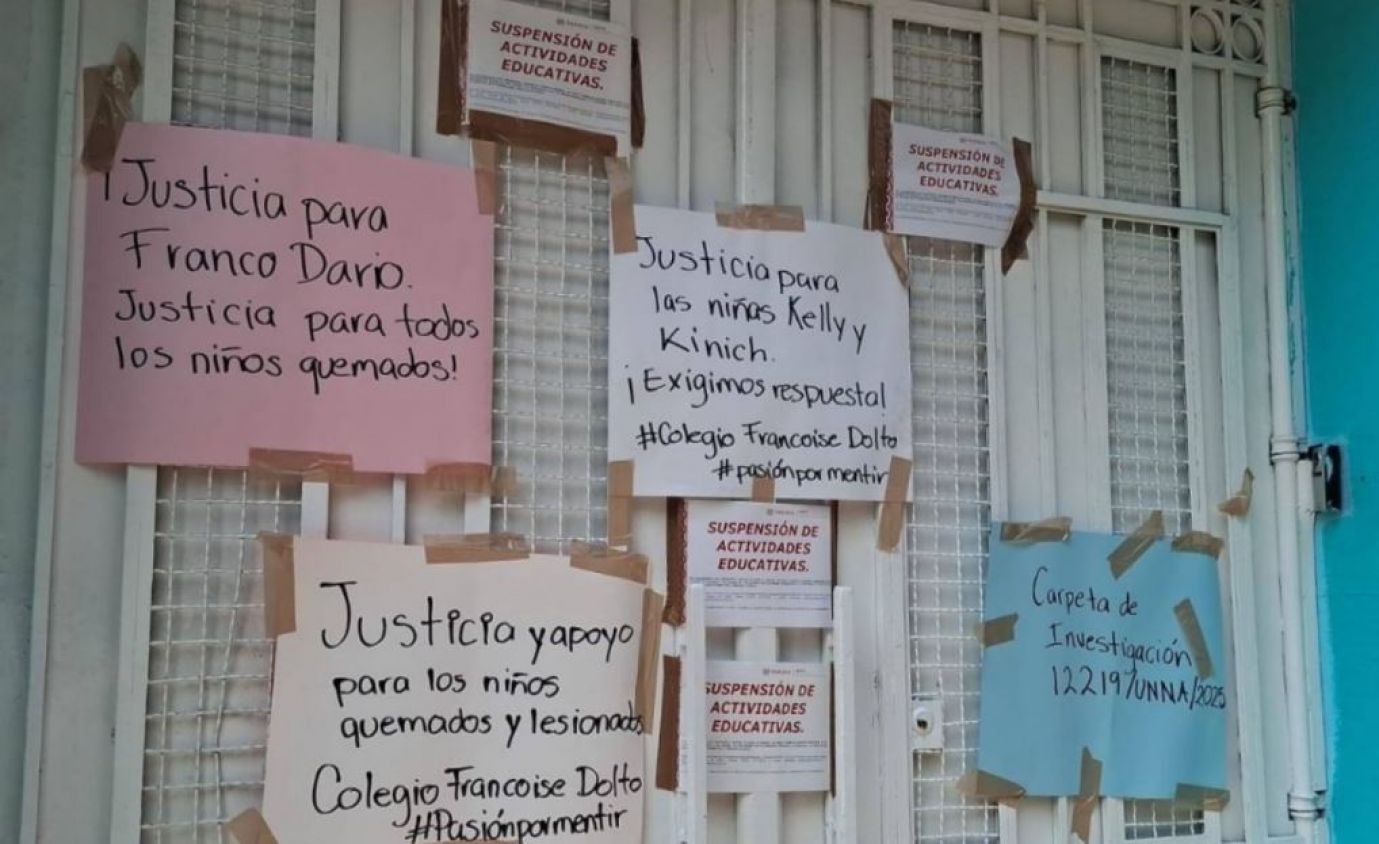 SUSPENSIÓN DE
ACTIVIDADES
EDUCATIVAS.
SUSPENSIÓN DE
ACTIVIDADES
EDUCATIVAS.
¡Justicia para
Franco Dario.
Justicia para todos
los niños quemados!
Justicia para
las niñas Kelly y
Kinich.
¡Exigimos respuesta!
#Colegio Francoise Dolto
#pasiónpormentir
SUSPENSIÓN DE
ACTIVIDADES
EDUCATIVAS.
Justicia y apoyo
para los niños
quemados y lesionados
Colegio Francoise Dolto
#Pasiónpormentir
SUSPENSIÓN DE
ACTIVIDADES
EDUCATIVAS.
Carpeta de
Investigación
122197UNNA/2025